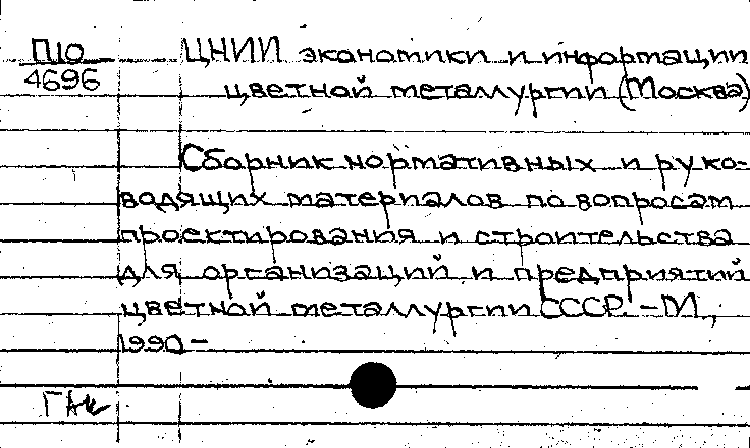 П10 ЦНИИ экономики и информации
4696 цветной металлургии (Москва)
Сборник нормативных и руко-
водящих материалов по вопросам
проектирования и строительства
для организаций и предприятий
цветной металлургии СССР. – М.,
1990 –